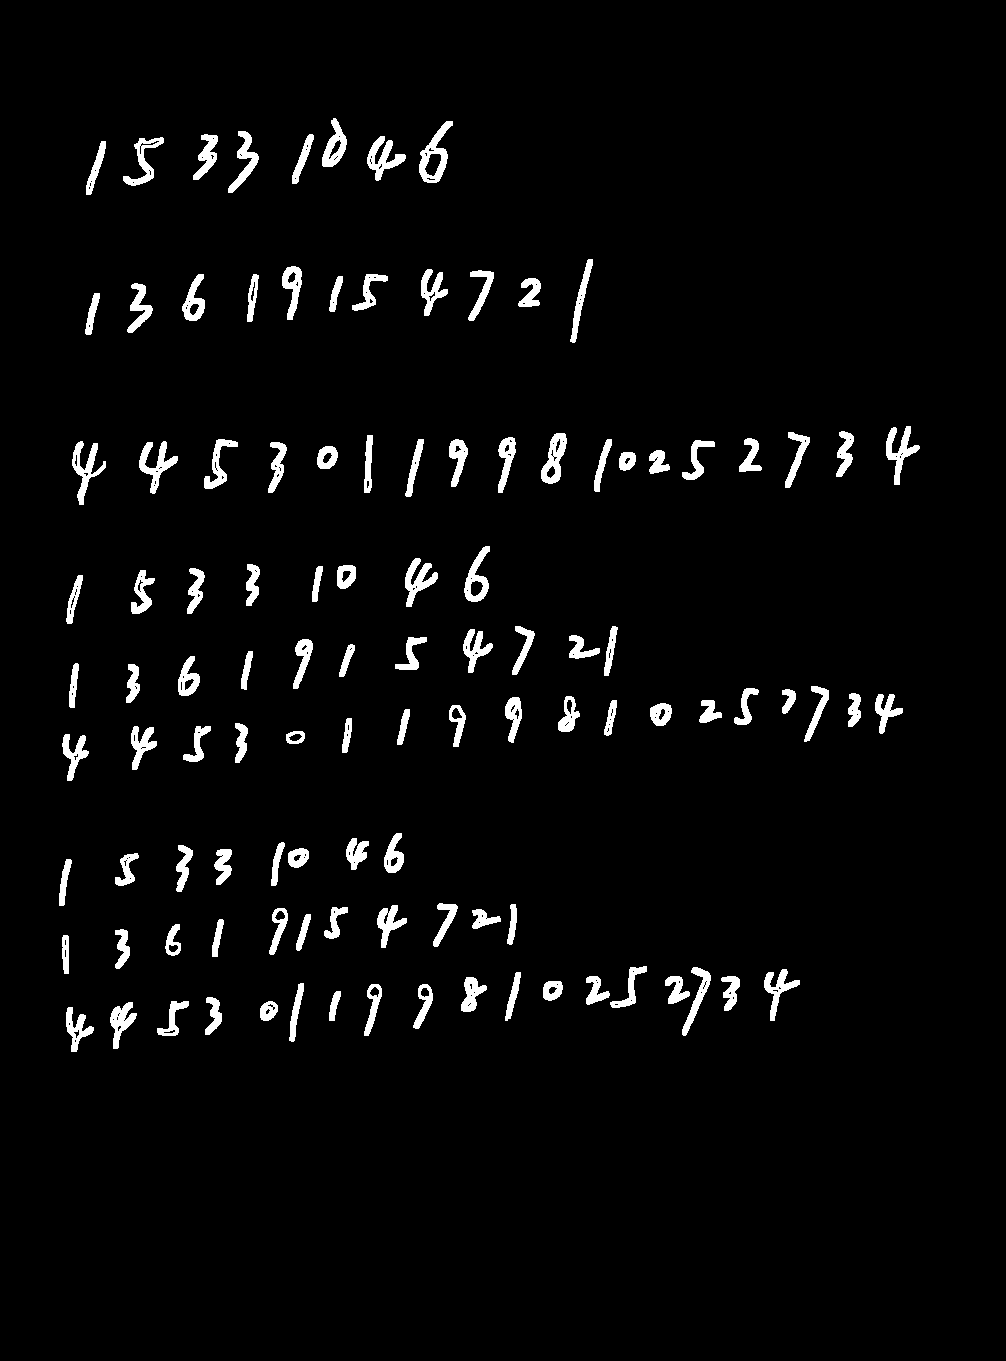 15331046
13619154721
445301199810252734
15331046
13619154721
445301199810252734
15331046
13619154721
445301199810252734